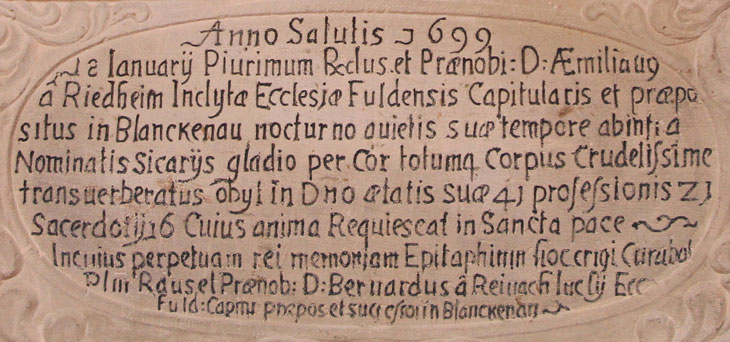 Anno Salutis 1699
18 Ianuarij Plurimum Rdus. et Prænobi: D: Æmilianus
â Riedheim Inclytæ Ecclesiæ Fuldensis Capitularis et præpo
situs in Blanckenau nocturno quietis suæ tempore abinfra
Nominatis Sicarijs gladio per Cor totumq Corpus Crudelissime
transuerberatus obyl in Dno ætatis suæ 41 professionis 21
Sacerdotij 16 Cuius anima Requiescat in Sancta pace
In cuius perpetuam rei memoriam Epitaphium hoc erigi Curabat
Plm Rdus et Prænob: D: Bernardus â Reinach
Fuld: Capnr præpos et successor in Blanckenau